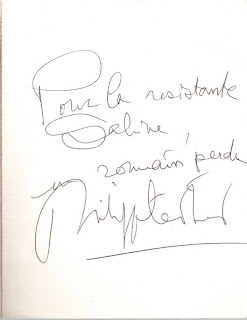 Pour la resistante
Sabine,
un romain perdu
Philippe